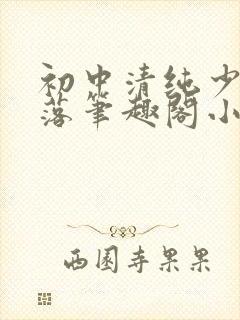 初中清纯少
落笔趣阁小
西园寺果果